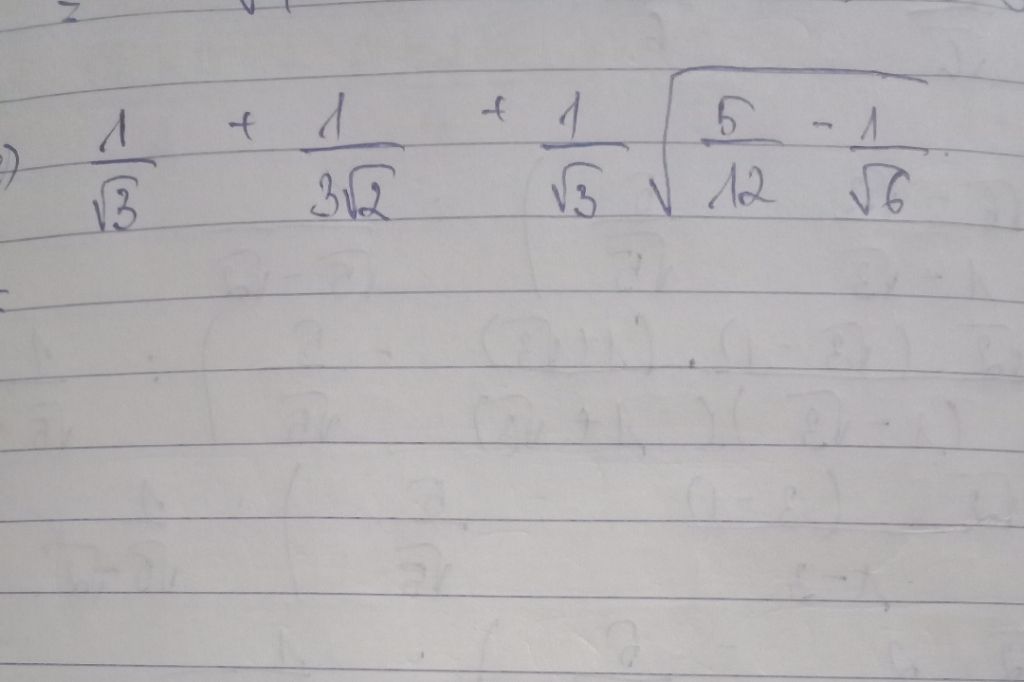 1/√3 + 1/3√2 + 1/√3 √(5/12 - 1/√6)